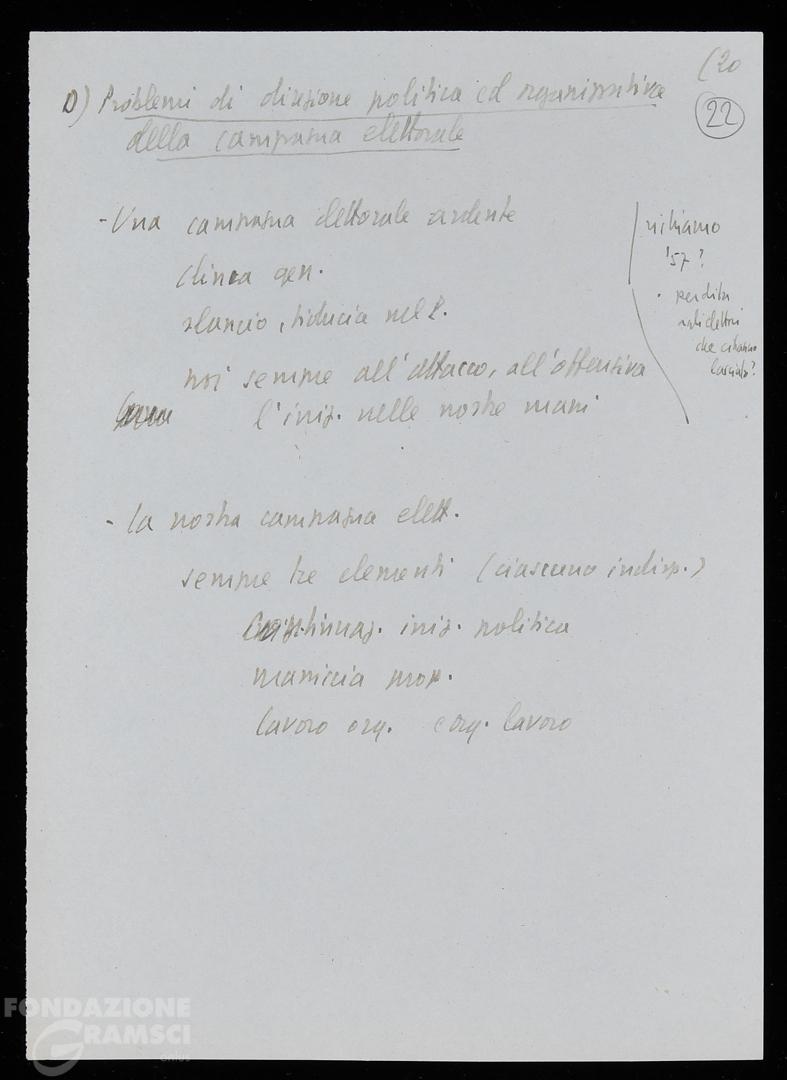 (20
22
D) Problemi di direzione politica ed organizzativa
della campagna elettorale
- Una campagna elettorale ardente
clima gen.
slancio, fiducia nel P.
noi sempre all'attacco, all'offensiva
l'iniz. nelle nostre mani
richiamo
'57?
perdita
che ci hanno
lasciato?
- la nostra campagna elett.
sempre tre elementi (ciascuno indisp.)
iniz. politica
massiccia prop.
lavoro org. e org. lavoro
FONDAZIONE
GRAMSCI
onlus